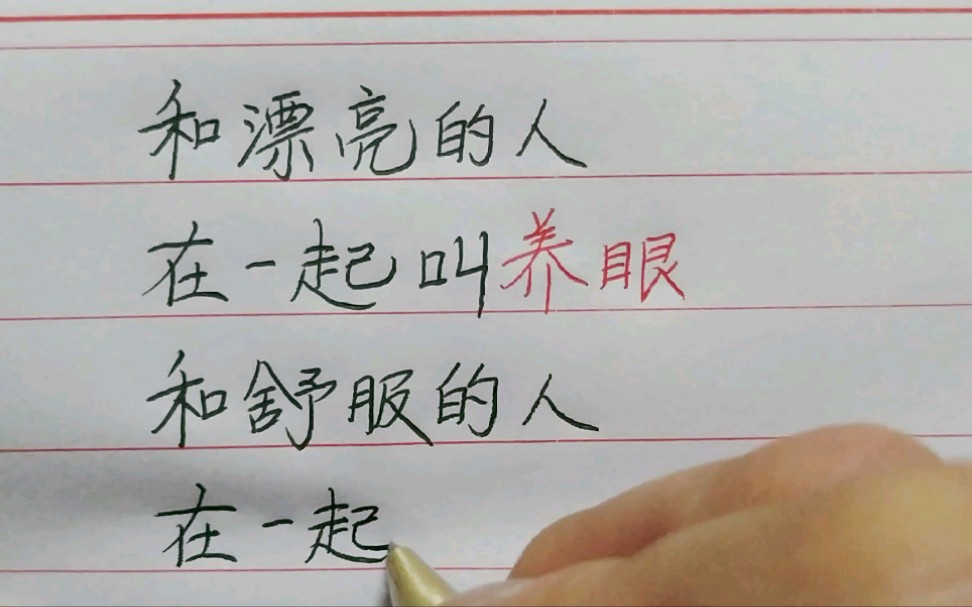 和漂亮的人
在一起叫养眼
和舒服的人
在一起